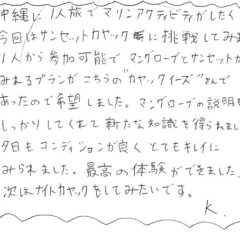 沖縄に1人旅でマリンアクティビティがしたく
今回はサンセットカヤックに挑戦してみま
1人から参加可能でマングローブとサンセットが
みれるプランがこちらの"カヤックイーズ"さんで
あったので希望しました。マングローブの説明も
しっかりしてくれて新たな知識を得られまし
夕日もコンディションが良くとてもキレイに
みられました。最高の体験ができました。
次はナイトカヤックをしてみたいです。
K.